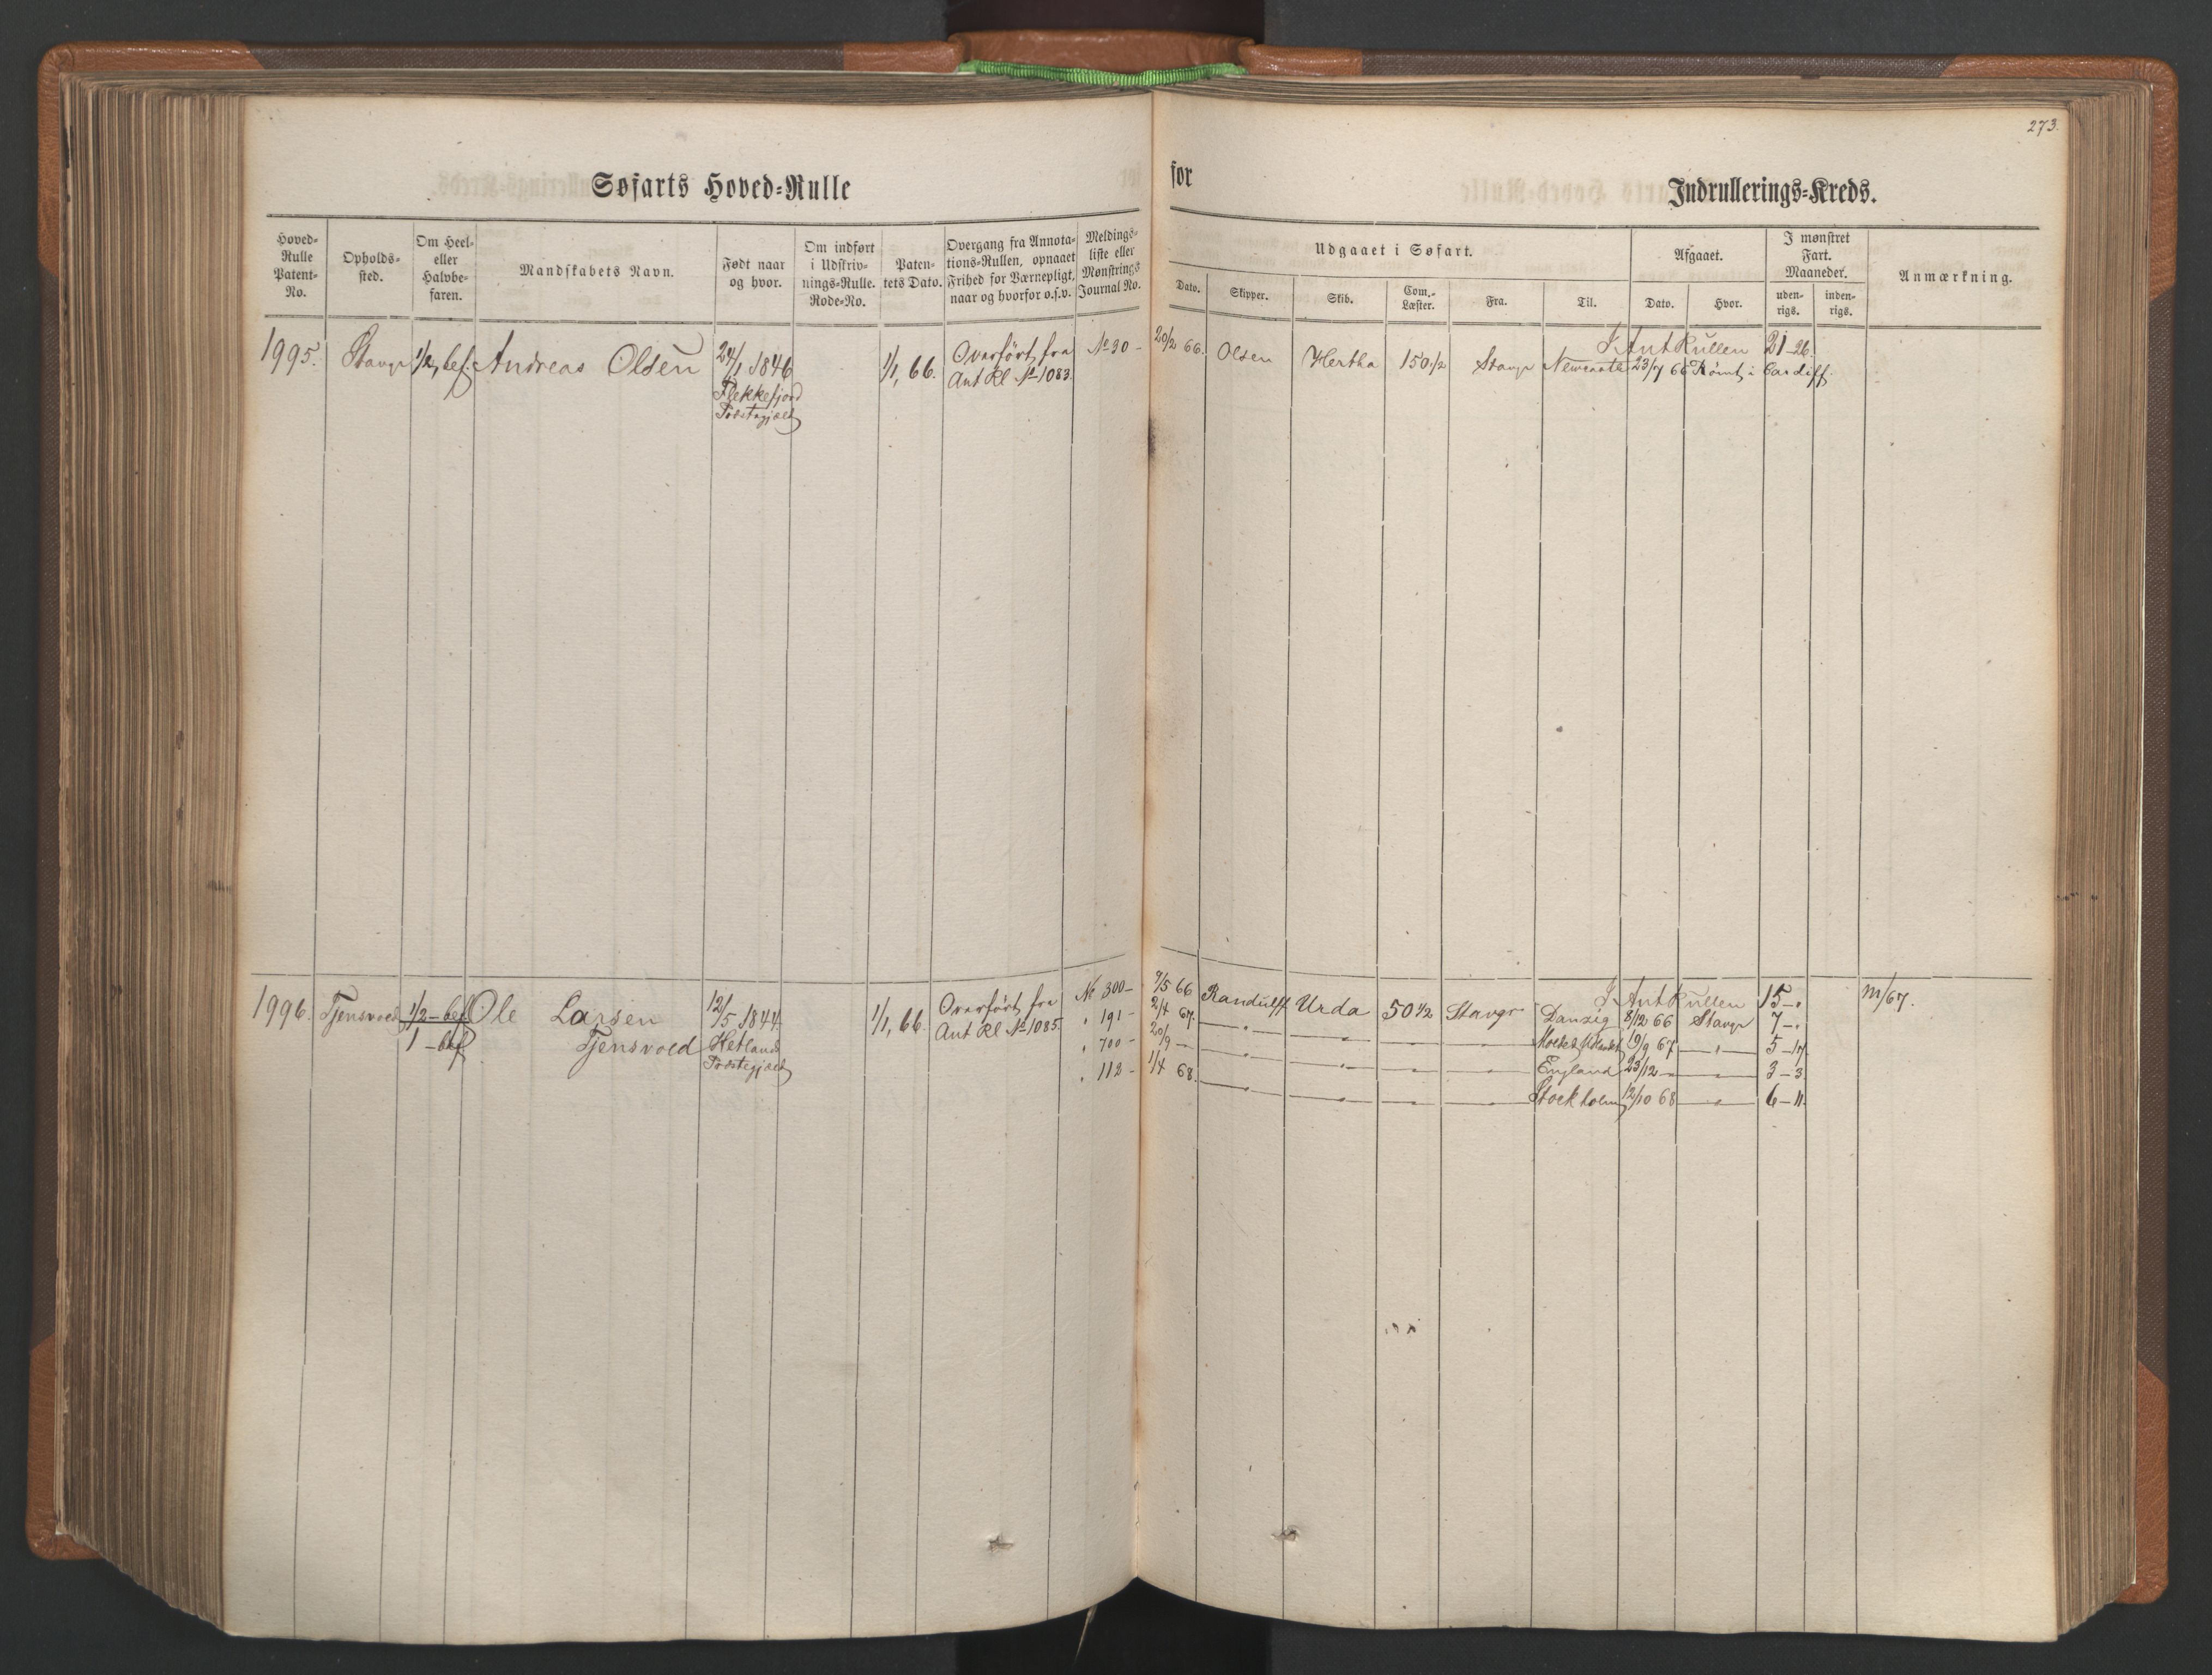 273.
Søfarts Hoved=Rulle for Indrullerings=Kreds.
Hoved=Rulle Patent=No.
Opholds=sted.
Om Heel= eller Halvbe=faren.
Mandskabets Navn.
Født naar og hvor.
Om indført i Udskriv=nings=Rulle. Rode=No.
Paten=tets Dato.
Overgang fra Annota=tions=Rullen, opnaaet Frihed for Værnepligt, naar og hvorfor o.s.v.
Meldings=liste eller Mønstrings Journal No.
Udgaaet i Søfart.
Dato. Skipper. Skib. Com.=Læster. Fra. Til.
Afgaaet.
Dato. Hvor.
I mønstret Fart. Maaneder.
uden=rigs. inden=rigs.
Anmærkning.
1995. Stavgr 1/2 bef. Andreas Olsen 24/1 1846 1/1, 66. Overført fra No 30 - 20/2 66. Olsen Hertha 150 1/2 Stavgr Newcastle 23/7 66 Römt i Cardiff.
I Ant Rullen 21-26.
Flekkefjord Ant Rl No 1083.
Præstegjæld
1996. Tjensvold 1/2 - bef Ole Larsen 12/5 1844 1/1, 66. Overført fra No 300 - 9/5 66 Randulff Urda 50 1/2 Stavgr Danzig 8/12 66 Stavgr 7 - "
I Ant Rullen 15 - " m/67.
1 - bef Tjensvold Hetland Ant Rl No 1085. " 191 - 2/4 67. 19/9 67 5 - 17
Præstegjæld " 700 - 20/9 - England 23/12 - 3 - 3
" 112 - 1/4 68. Stockholm 12/10 68 6 - 11.